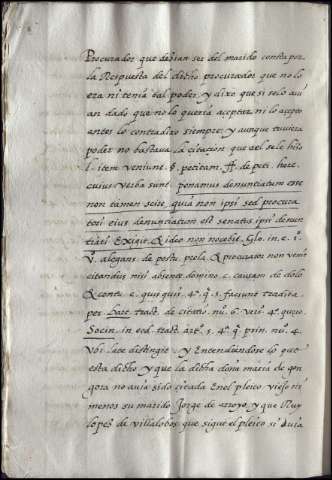 Procurador que debian ser del marido consta por
la Respuesta del dicho procurador que no lo
era ni tenia tal poder, y dixo que si se lo avi
an dado que no lo queria aceptar, ni lo acepto
antes lo contradixo siempre, y aunque tuviera
poder no bastava la citaçion que se le hizo
l. item veniunt. §. petitam. ff. de peti. here.
cuius verba sunt ponamus denunciatum esse
non tamen scire, quia non ipsi sed procura
tori eius denunciatum est senatus ipsi denun
tiari exigit. & ideo non nocebit. Glo. in. c. 1.
V. alegans. de postu. prela. & Procurator non venit
citandus nisi absente domino c. causam de dolo
& contu. c. quis quis. 4. q. 5. faciunt tradita
per Lart. tract. de citatio. nu. 6. vers. 4. quero
Socin. in eod. tract. art. 5. 4. q. prin. nu. 4.
Vbi late distingit y Entendiendose lo que
esta dicho y que la dicha doña maria de gon
gora no avia sido citada En el pleito viejo ni
menos su marido Jorge de arroyo, y que Ruy
lopes de villalobos que sigue el pleito si avia